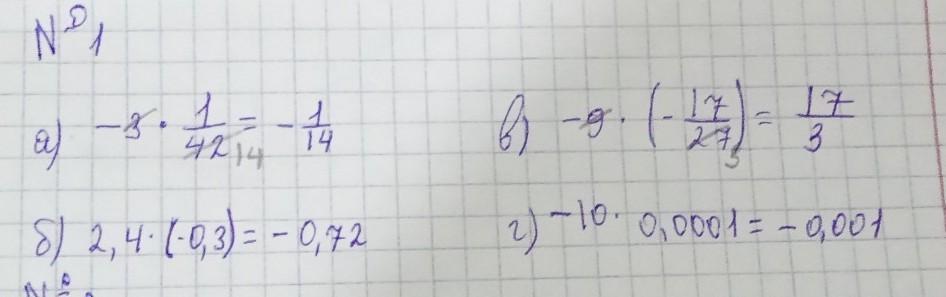 №1
а) -3 · 1/42 14 = - 1/14
в) -9 · (- 17/27 3) = 17/3
б) 2,4 · (-0,3) = -0,72
г) -10 · 0,0001 = -0,001